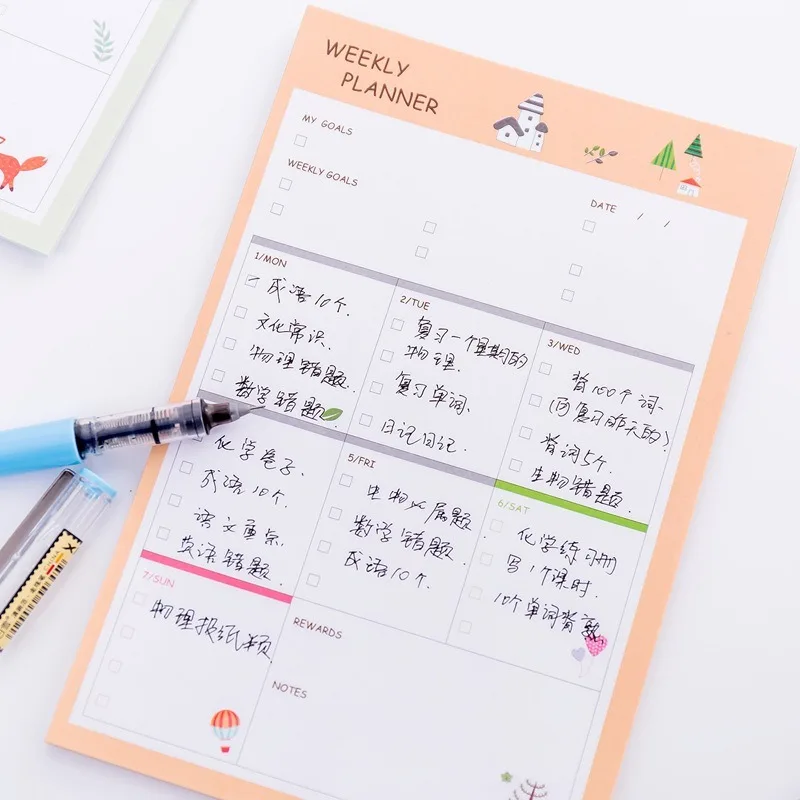 WEEKLY
PLANNER
MY GOALS
WEEKLY GOALS
DATE / /
1/MON
成语10个.
文化常识.
物理错题.
数学错题
2/TUE
复习一个星期的
物理.
复习单词.
日记日记.
3/WED
背100个词.
(回复习昨天的)
背词5个.
生物错题.
化学卷子.
成语10个.
语文
英语错题.
5/FRI
生物 属题
数学错题.
成语10个.
6/SAT
化学练习册
写1个课时.
10个单词背
7/SUN
物理报纸1页
REWARDS
NOTES